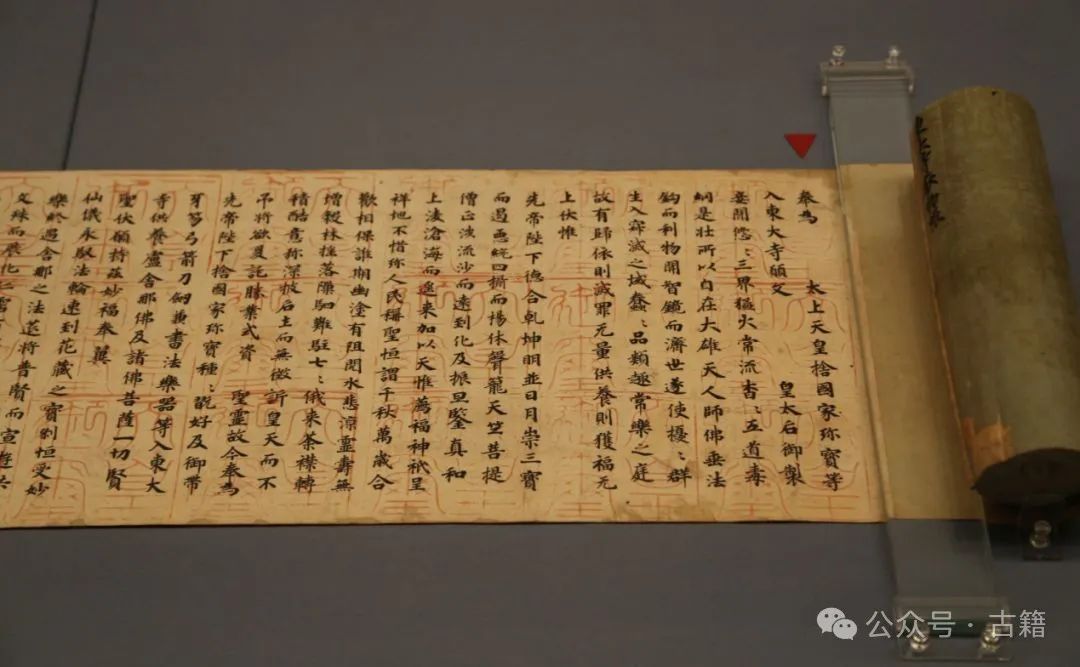 奉為 太上天皇捨國家珎寶等
入東大寺願文 皇太后御製
妾聞悠々三界猛火常流杳々五道毒
網是壮所以自在大雄天人師佛垂法
鈎而利物開智鏡而濟世遂使擾々群
生入寂滅之域蠢々品類趣常樂之庭
故有歸依則滅罪无量供養則獲福无
上伏惟
先帝陛下德合乾坤明並日月崇三寳
而遏惡統四攝而揚休聲籠天竺菩提
僧正涉流沙而遠到化及振旦鑒真和
上凌滄海而遥来加以天惟薦福神祇呈
祥地不惜珎人民稱聖恒謂千秋萬歳合
歡相保誰期幽塗有阻閲水悲凉靈壽無
增穀林揺落隟駟難駐七々俄来荼襟轉
積酷意弥深披后土而無徴訴皇天而不
弔将欲爰託勝業式資 聖靈故今奉為
先帝陛下捨國家珎寶種々翫好及御帶
牙笏弓箭刀劔兼書法樂器等入東大
寺供養盧舍那佛及諸佛菩薩一切賢
聖伏願持茲妙福奉翼
仙儀永馭法輪速到花藏之寶刹恒受妙
樂終遇舍那之法莚将普賢而宣遊共
文殊而展化
公众号·古籍